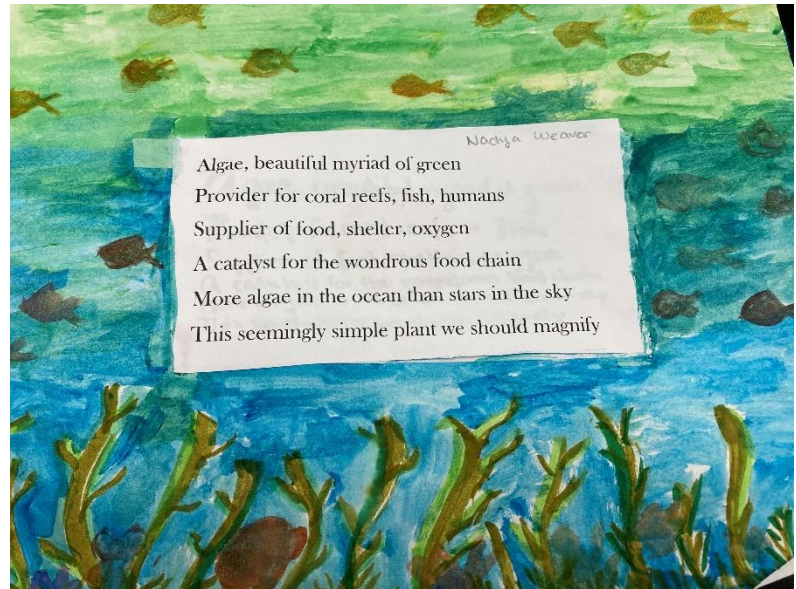 Nadya Weaver
Algae, beautiful myriad of green
Provider for coral reefs, fish, humans
Supplier of food, shelter, oxygen
A catalyst for the wondrous food chain
More algae in the ocean than stars in the sky
This seemingly simple plant we should magnify